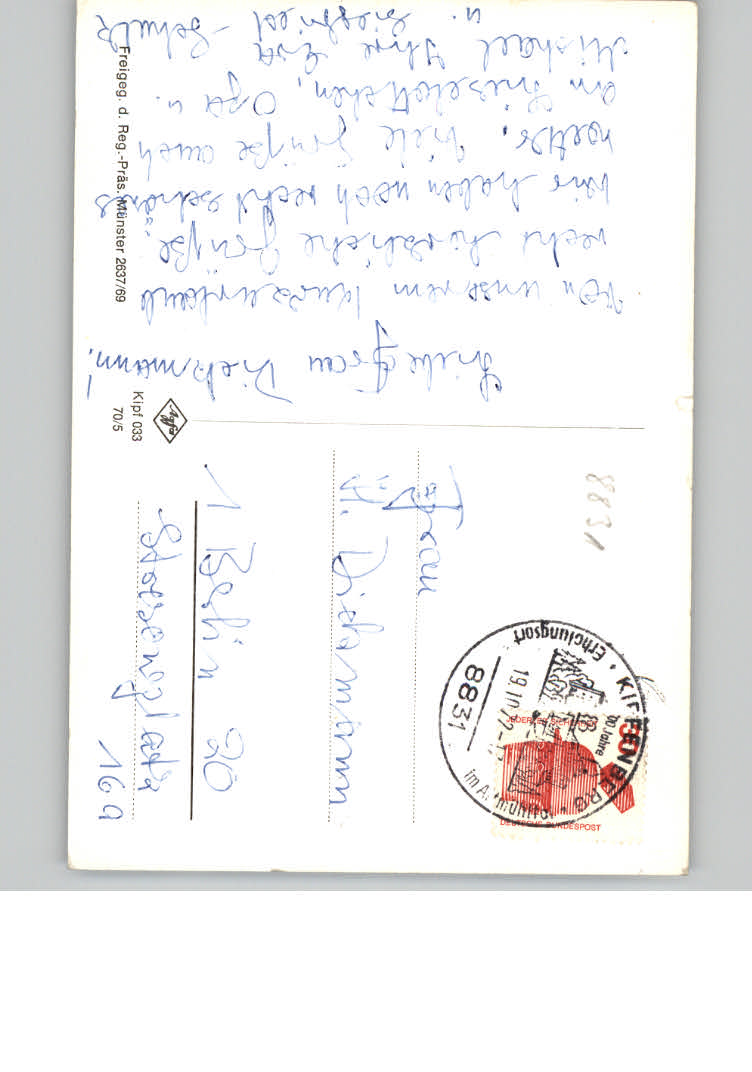 Liebe Frau Diekmann!
Von unserem Kurzurlaub
recht herzliche Grüße.
Wir haben noch recht schönes
Wetter. Viele Grüße auch
an Lieselottchen, Opa u.
Michael Ihre Eva
u. Siegfried Schulz
Freigeg. d. Reg.-Präs. Münster 2637/69
Agfa
Kipf 033
70/5
8831
Frau
Diekmann
1 Berlin 20
16a
KIPFENBERG
Erholungsort
im Altmühltal
8831
19.10.72
Jahre
JEDERZEIT SICHERHEIT
30
DEUTSCHE BUNDESPOST